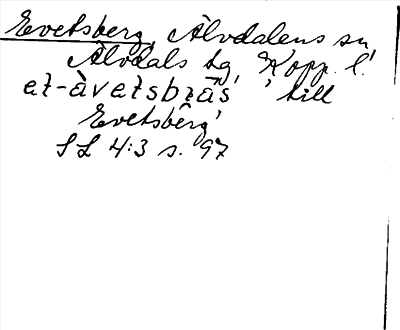 Evetsberg, Älvdalens sn,
Älvdals tg, Kopp. l.
'till
Evetsberg'
SL 4:3 s. 97